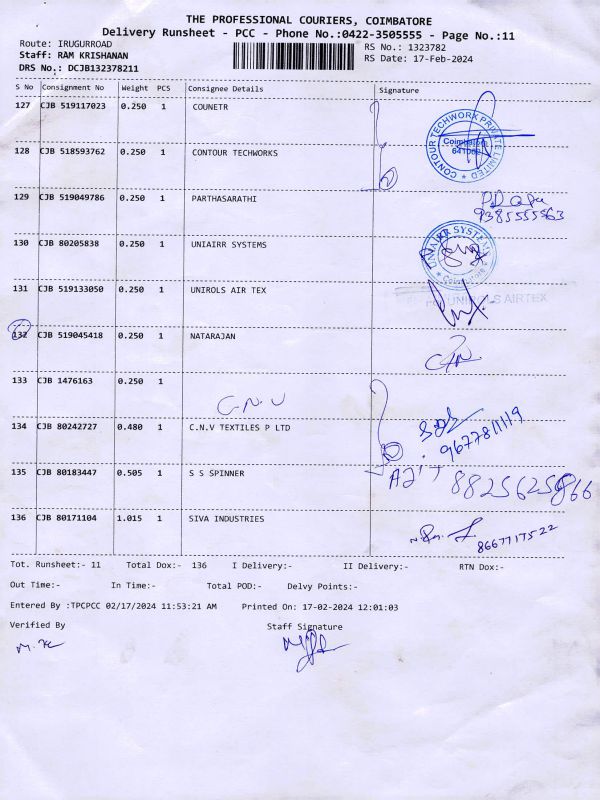 THE PROFESSIONAL COURIERS, COIMBATORE
Delivery Runsheet - PCC - Phone No.:0422-3505555 - Page No.:11
Route: IRUGURROAD RS No.: 1323782
Staff: RAM KRISHANAN RS Date: 17-Feb-2024
DRS No.: DCJB132378211
S No Consignment No Weight PCS Consignee Details Signature
127 CJB 519117023 0.250 1 COUNETR
CONTOUR TECHWORK PRIVATE LIMITED
Coimbatore
128 CJB 518593762 0.250 1 CONTOUR TECHWORKS
129 CJB 519049786 0.250 1 PARTHASARATHI
9385555563
130 CJB 80205838 0.250 1 UNIAIRR SYSTEMS
UNIAIRR SYSTEMS
131 CJB 519133050 0.250 1 UNIROLS AIR TEX
UNIROLS AIRTEX
132 CJB 519045418 0.250 1 NATARAJAN
133 CJB 1476163 0.250 1
C.N.V
134 CJB 80242727 0.480 1 C.N.V TEXTILES P LTD
9677811119
135 CJB 80183447 0.505 1 S S SPINNER
8825625866
136 CJB 80171104 1.015 1 SIVA INDUSTRIES
8667717522
Tot. Runsheet:- 11 Total Dox:- 136 I Delivery:- II Delivery:- RTN Dox:-
Out Time:- In Time:- Total POD:- Delvy Points:-
Entered By :TPCPCC 02/17/2024 11:53:21 AM Printed On: 17-02-2024 12:01:03
Verified By Staff Signature